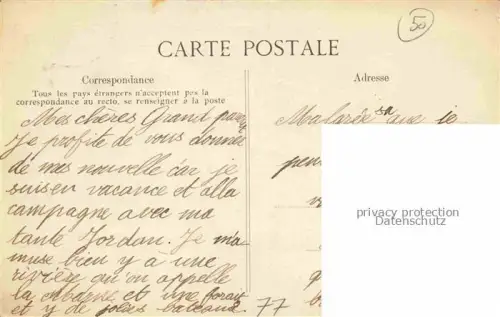 50
CARTE POSTALE
Correspondance
Tous les pays étrangers n'acceptent pas la
correspondance au recto, se renseigner à la poste
Adresse
Mes chères Grand
Je profite de vous donner
de mes nouvelle car je
suis en vacance et a la
campagne avec ma
tante Jordan. Je m'a
muse bien y à une
rivière qu'on appelle
la et une
et y de jolies bateaux
Malarée sa que je
peu
77
privacy protection
Datenschutz